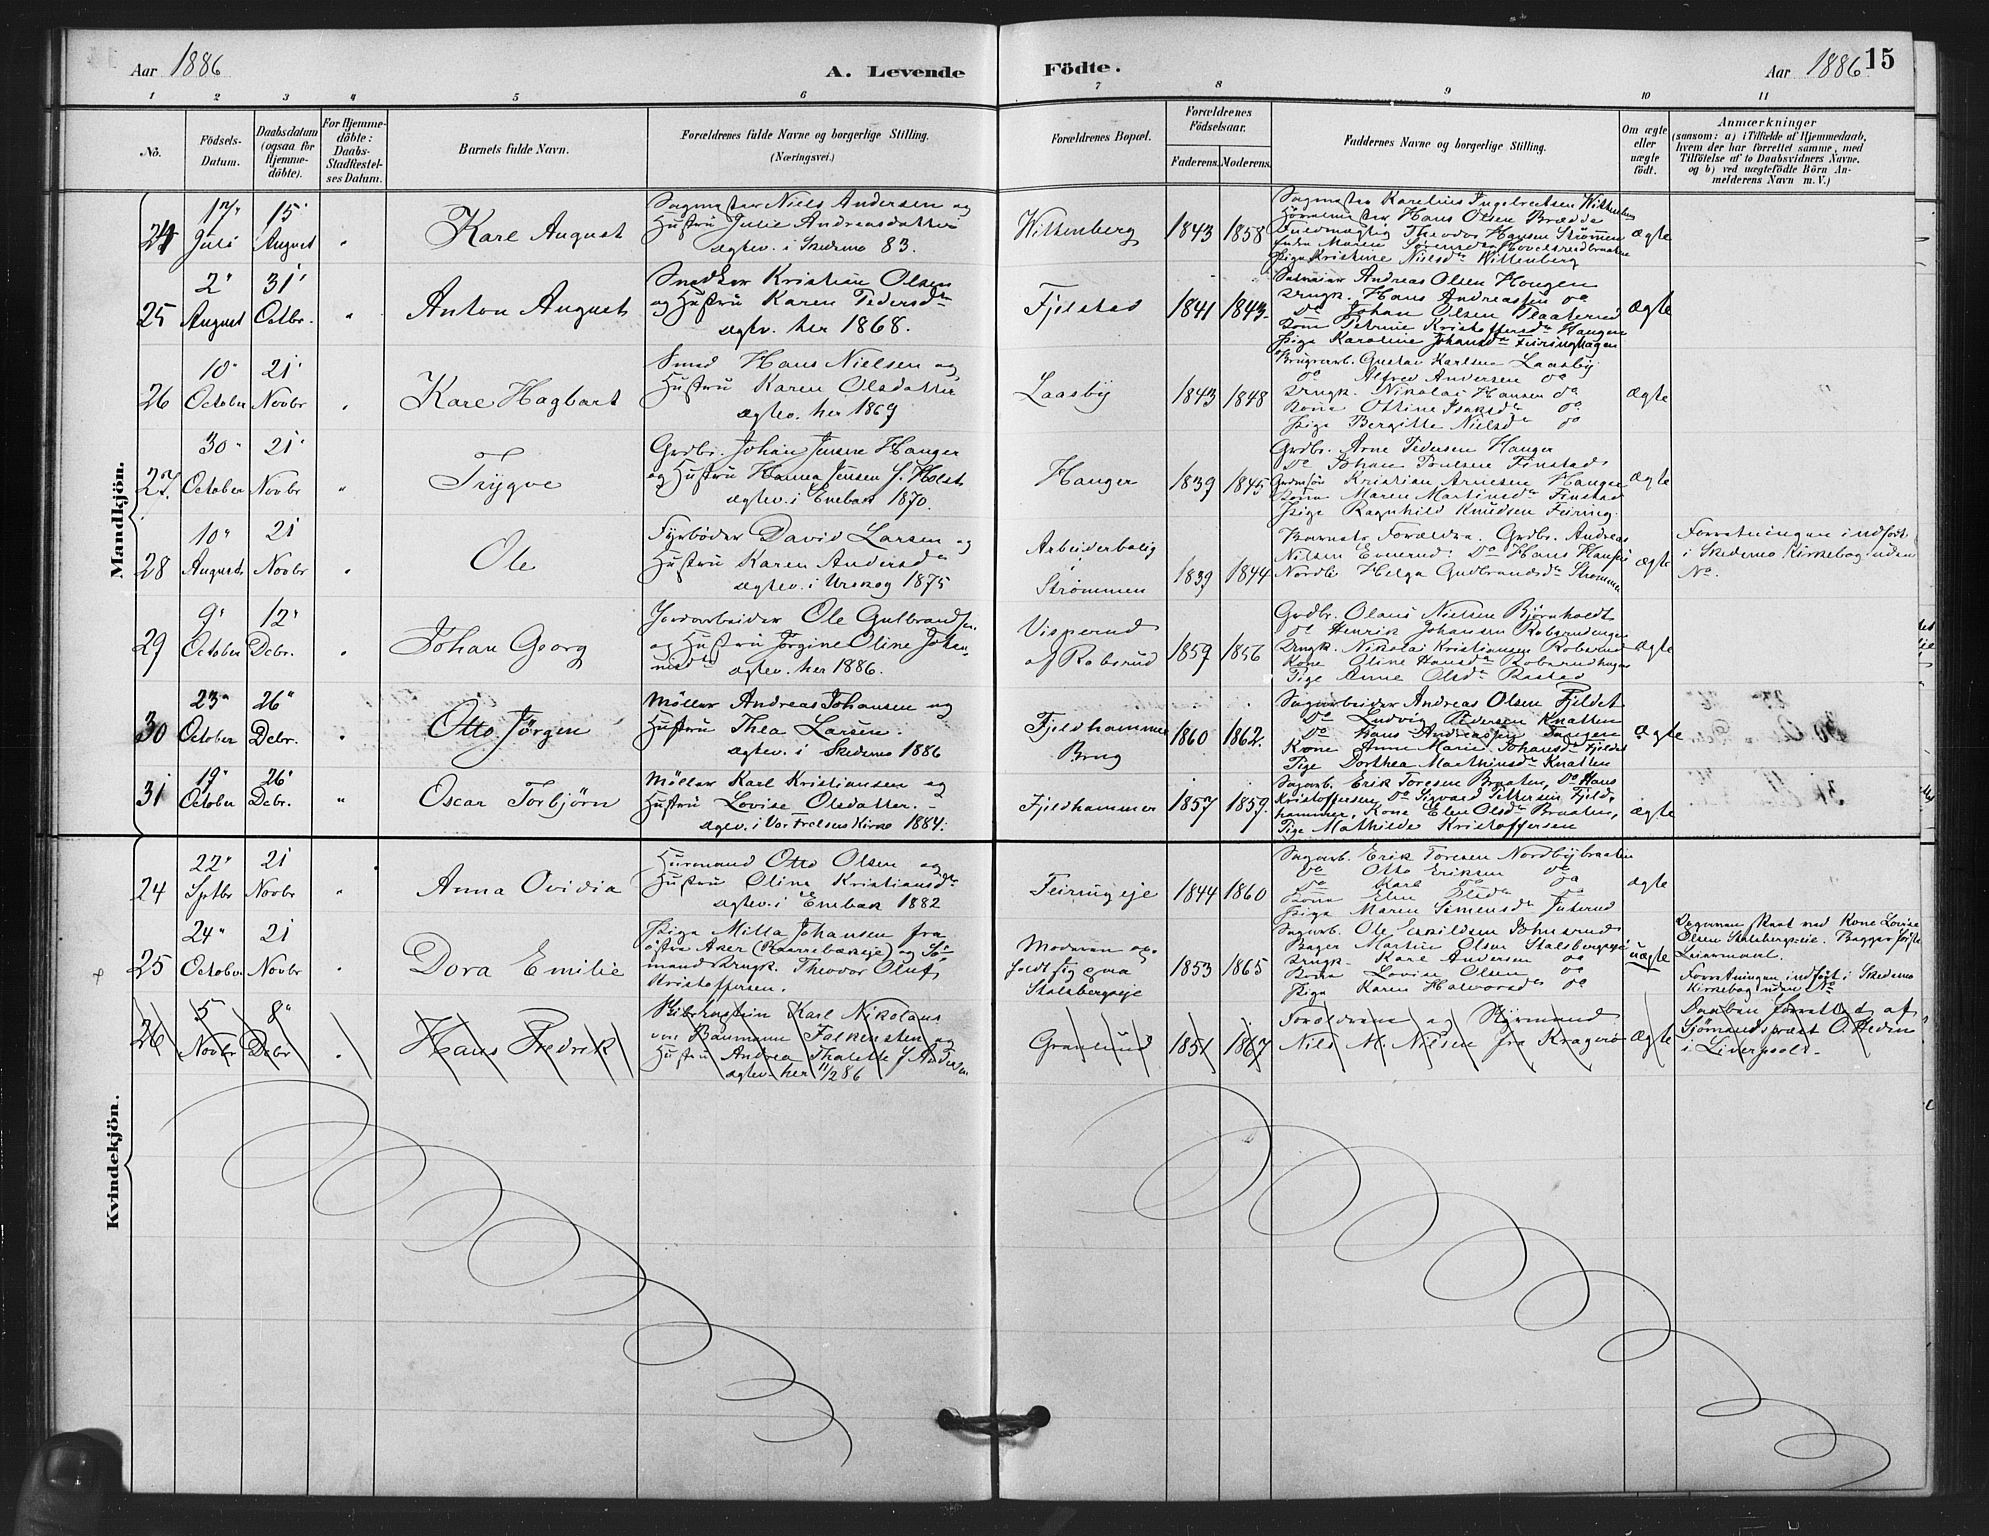 Aar 1886 A. Levende Födte. Aar 1886 15
1 2 3 4 5 6 7 8 9 10 11
No.
Födsels-
Datum.
Daabsdatum
(ogsaa for
Hjemme-
döbte).
For Hjemme-
döbte:
Daabs-
Stadfæstel-
ses Datum.
Barnets fulde Navn.
Forældrenes fulde Navne og borgerlige Stilling.
(Næringsvei.)
Forældrenes Bopæl.
Forældrenes
Födselsaar.
Faderens. Moderens.
Faddernes Navne og borgerlige Stilling.
Om ægte
eller
uægte
födt.
Anmærkninger
(saasom: a) i Tilfælde af Hjemmedaab,
hvem der har forrettet samme, med
Tilföielse af to Daabsvidners Navne,
og b) ved uægtefödte Börn An-
melderens Navn m. V.)
Mandkjön.
24
17 Juli
15 August
Karl August
Sagmester Niels Andersen og
Hustru Julie Andreasdatter
ægtev. i Skedsmo 83.
Wittenberg
1843 1858
Sagmester Karelius Ingebretsen Wittenberg
Hans Olsen Brædde
Fuldmægtig Theodor Hansen Strømmen
Maren
Pige Kristine Nielsda Wittenberg
ægte
25
2 August
31 Octbr.
Anton August
Snedker Kristian Olsen
og Hustru Karen Pedersda
ægtev. her 1868.
Fjelstad
1841 1843.
Andreas Olsen Haugen
Drngk. Hans Andreassen do
Do Johan Olsen
Kone Petrine Kristoffersda Haugen
Pige Karoline Johansda Feiringhagen
ægte
26
10 October
21 Novbr
Kare Hagbart
Smed Hans Nielsen og
Hustru Karen Olsdatter
ægtev. her 1869
Laasby
1843 1848
Brugsarb. Gustav Karlsen Laasby
do Alfred Andersen do
Drngk. Nikolai Hansen do
Kone Ottine Isaksda do
Pige Bergitte Nielsda do
ægte
27.
30 October
21 Novbr
Trygve
Grdbr. Johan Jensen Hauger
og Hustru Hanna Jensen f. Holst
ægtev. i Enebak 1870.
Hauger
1839 1845
Grdbr. Arne Pedersen Hauger
Do Johan Poulsen Finstad
Kristian Arnesen Hauger
Kone Maren Martinsda Finstad
Pige Ragnhild Knudsen Feiring.
ægte
28
10 August
21 Novbr
Ole
Fyrbøder David Larsen og
Hustru Karen Andersda
ægtev. i Urskog 1875
Arbeiderbolig
Strømmen
1839 1844
Barnets Forældre. Grdbr. Andreas
Nilsen Do Hans Hansen
Nordli Helga Gudbrandsda Strømmen
ægte
Forretningen indført
i Skedsmo Kirkebog uden
No.
29
9 October
12 Debr.
Johan Georg
Jordarbeider Ole Gulbrandsen
og Hustru Jørgine Oline Johan-
nesda
ægtev. her 1886.
Visperud
af Robsrud
1859 1856
Grdbr. Olaus Nielsen Bjørnholdt
do Henrik Johansen Robsrudengen
Drngk. Nikolai Kristiansen Robsrud
Kone Oline Hansda Robsrudhagen
Pige Anne Olsda
ægte
30
23 October
26 Debr.
Otto Jörgen
Møller Andreas Johansen og
Hustru Thea Larsen.
ægtev. i Skedsmo 1886
Fjeldhammer
Brug
1860 1862.
Sagarbeider Andreas Olsen Fjeldet
Do Ludvig Pedersen Knatten
Do Hans Andreassen Tangen
Kone Anne Marie Johansda Fjeldet
Pige Dorthea Mathinsda Knatten
ægte
31
19 October
26 Debr.
Oscar Torbjörn
Møller Karl Kristiansen og
Hustru Lovise Olsdatter.
ægtev. i Vor Frelsers Kirke 1884.
Fjeldhammer
1857 1859.
Sagarb. Erik Toresen Braaten, Do Hans
Kristoffersen, Do Sigvard Pettersen Fjeld-
hammer, Kone Elen Olsda Braaten,
Pige Mathilde Kristoffersen
ægte
Kvindekjön.
24
22 Sptbr
21 Novbr
Anna Ovidia
Husmand Otto Olsen og
Hustru Oline Kristiansda
ægtev. i Enebak 1882
Feiringeje
1844 1860
Sagarb. Erik Toresen Nordbybraaten
Do Otto Eriksen do
Do Karl do do
Kone Elen Olsda do
Pige Maren Simensda
ægte
25
24 October
21 Novbr
Dora Emilie
Pige Milla Johansen fra
østre Aker og Sö-
mand Drngk. Theodor Oluf
Kristoffersen.
Moderen op-
holdt sig paa
Stalsbergseje
1853 1865
Sagarb. Ole Eskildsen
Bager Martin Olsen Stalsbergseje
Drngk. Karl Andersen do
Kone Lovise Olsen do
Pige Karen Halvorsda do
uægte
Olsen Stalsbergseje.
Forretningen indført i Skedsmo
Kirkebog uden No
26
5 Novbr
8 Debr
Hans Fredrik
Karl Nikolaus
von Baumann Falkensten og
Hustru Andrea Thalette f. Andersen
ægtev. her 11/2 86
Granlund
1851 1867
Forældrene og Styrmand
Nils M. Nilsen fra Kragerø
ægte
Daaben forrettet af
Sjømandspræst O. Hedem
i Liverpool.